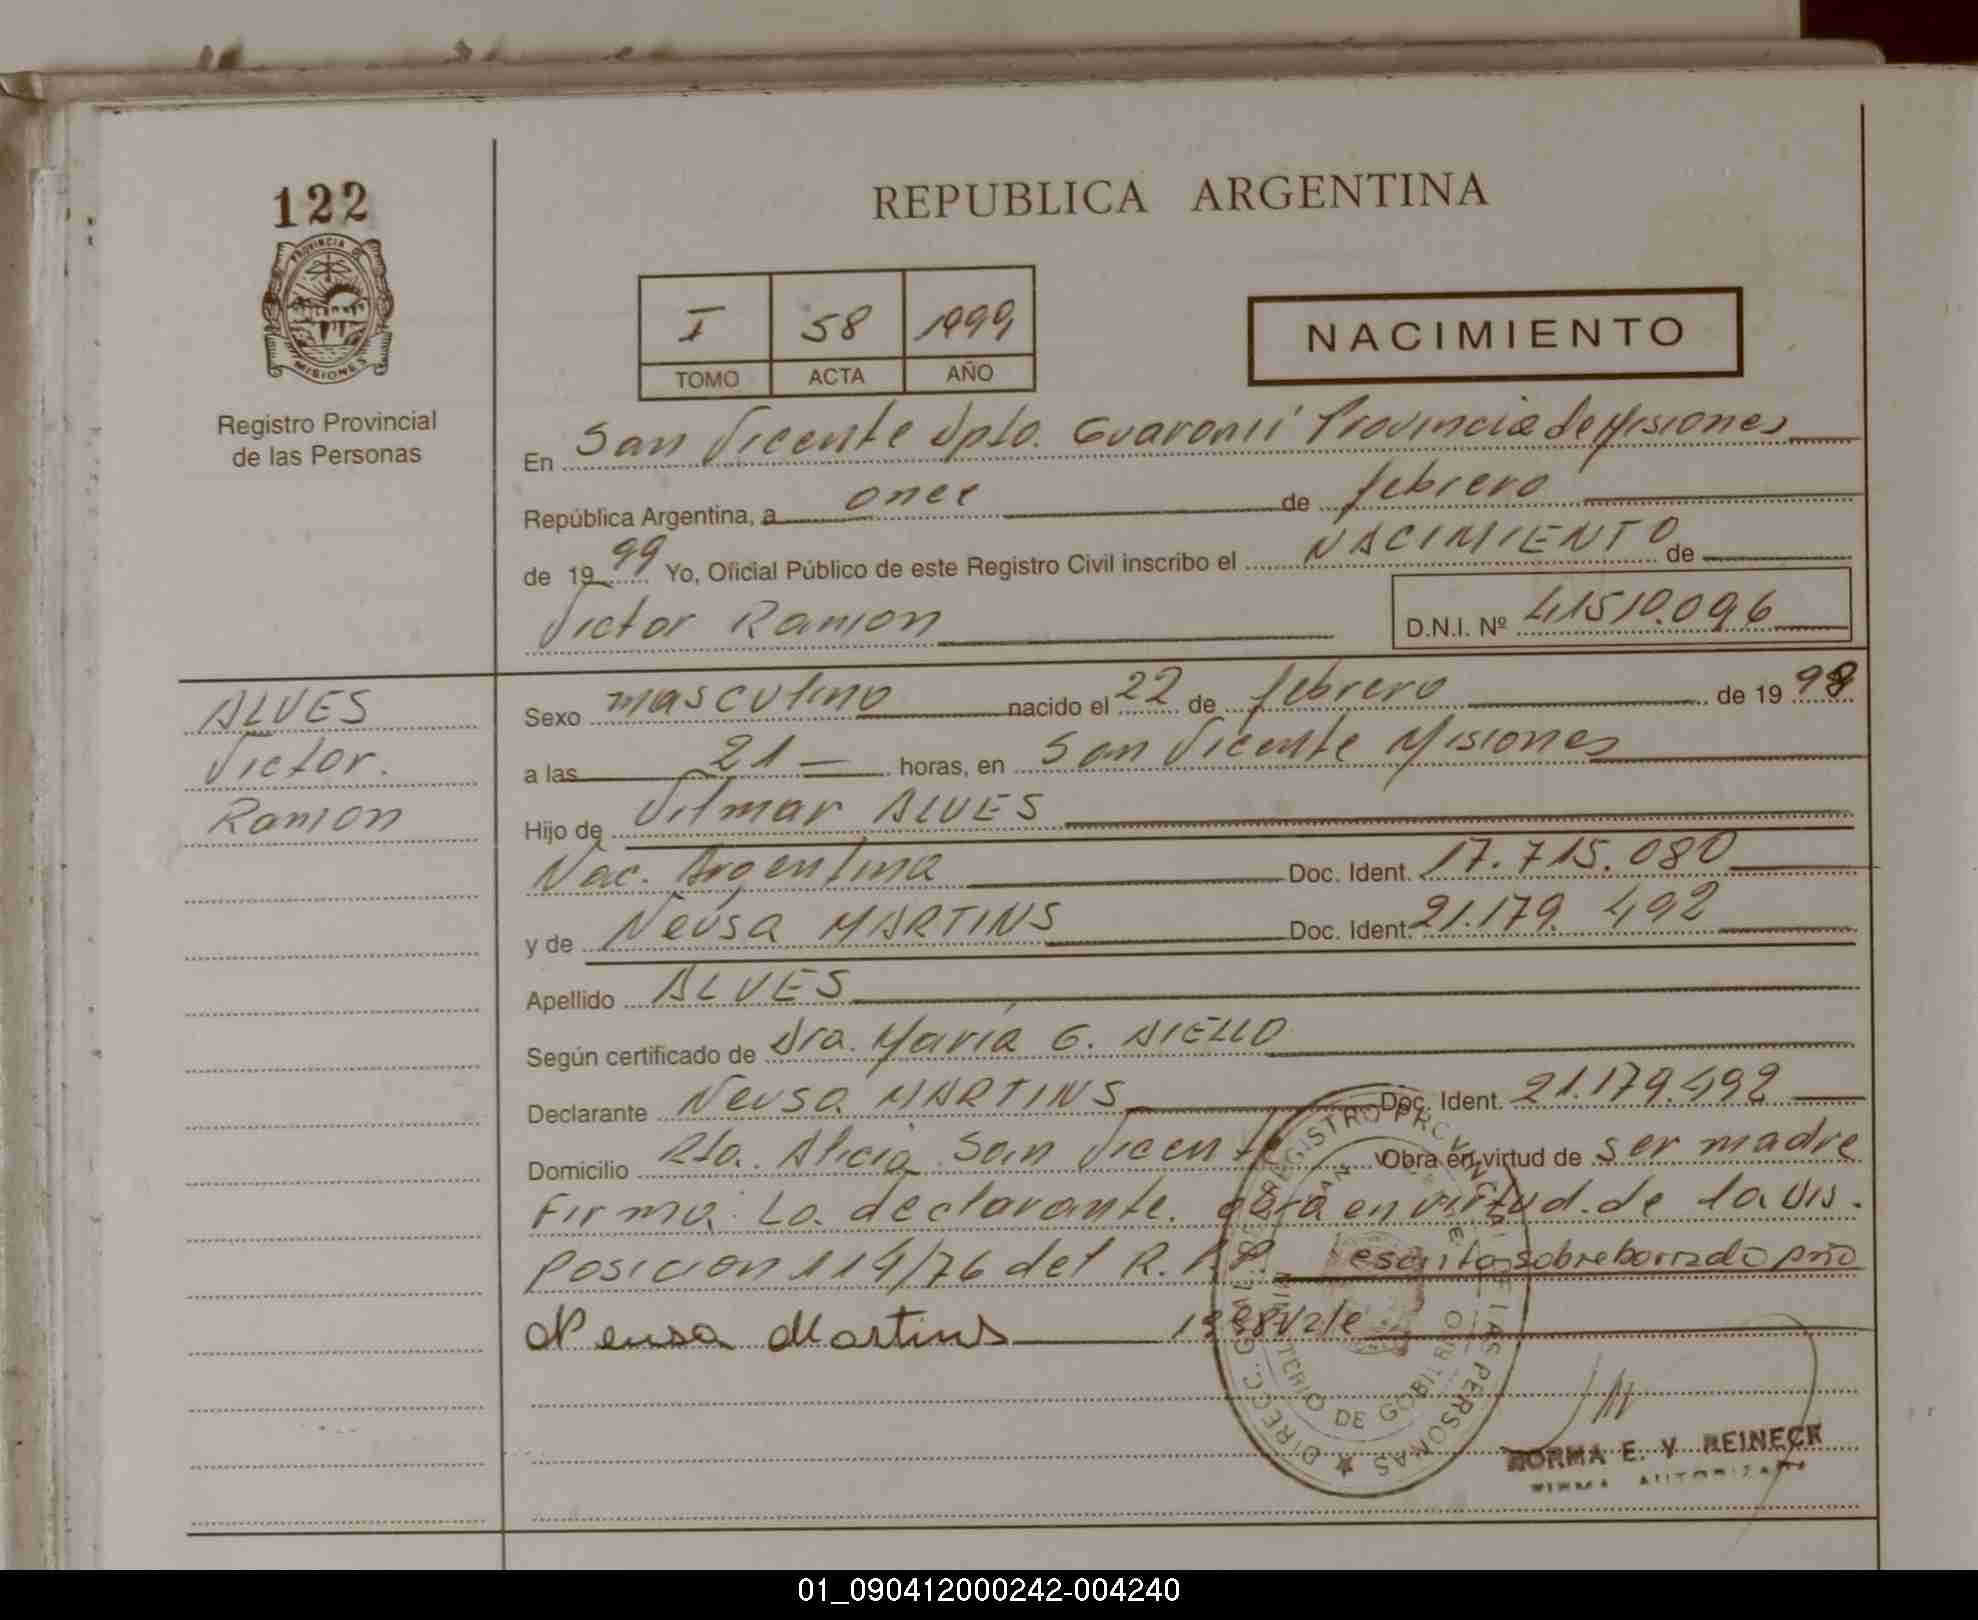 122
PROVINCIA
MISIONES
Registro Provincial
de las Personas
REPUBLICA ARGENTINA
I 58 1999
TOMO ACTA AÑO
NACIMIENTO
En San Vicente Dpto. Guaraní Provincia de Misiones
República Argentina, a once de febrero
de 1999 Yo, Oficial Público de este Registro Civil inscribo el NACIMIENTO de
Victor Ramon D.N.I. Nº 41510.096
ALVES
Victor.
Ramon
Sexo masculino nacido el 22 de febrero de 1998
a las 21 horas, en San Vicente Misiones
Hijo de Vilmar ALVES
Nac. Argentina Doc. Ident. 17.715.080
y de Neusa MARTINS Doc. Ident. 21.179.492
Apellido ALVES
Según certificado de Dra. María G. AIELLO
Declarante Neusa MARTINS Doc. Ident. 21.179.492
Domicilio Rto. Alicia San Vicente Obra en virtud de ser madre
Firma: La declarante. para en virtud de la Dis-
posicion 114/76 del R.P.P. escrito sobreborrado año
Neusa Martins 1998 Vale
DIRECC. GRAL. DEL REGISTRO PROVINCIAL DE LAS PERSONAS
MINISTERIO DE GOBIERNO
NORMA E. V. REINECK
FIRMA AUTORIZADA
01_090412000242-004240